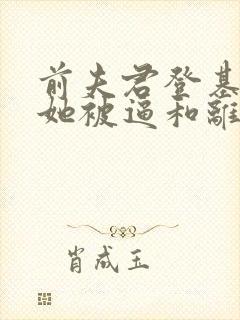 前夫君登基
她被逼和離
肖成玉